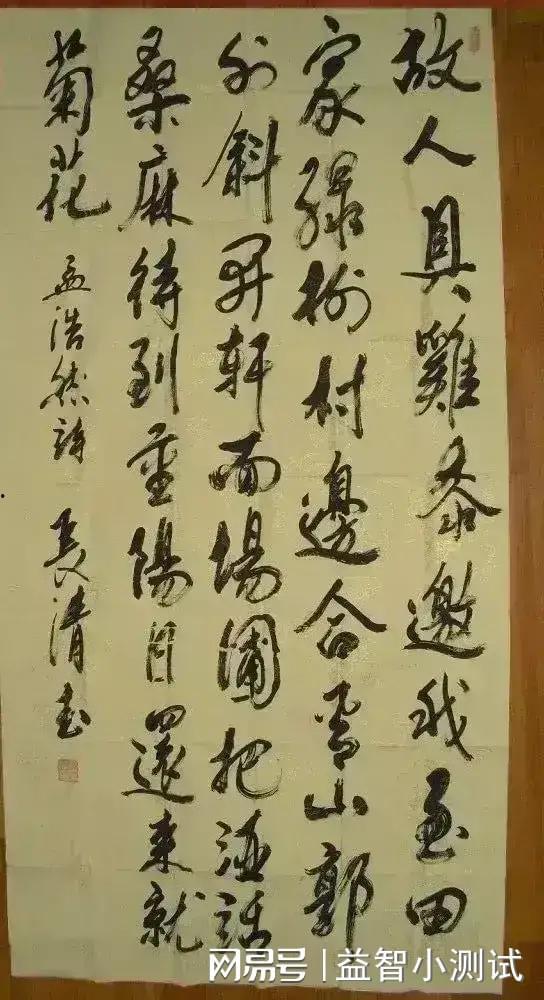 故人具雞黍邀我至田
家綠樹村邊合青山郭
外斜開軒面場圃把酒話
桑麻待到重陽日還來就
菊花 孟浩然詩 長清書
网易号 | 益智小测试